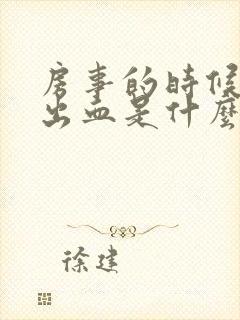 房事的時候
出血是什麼
徐建